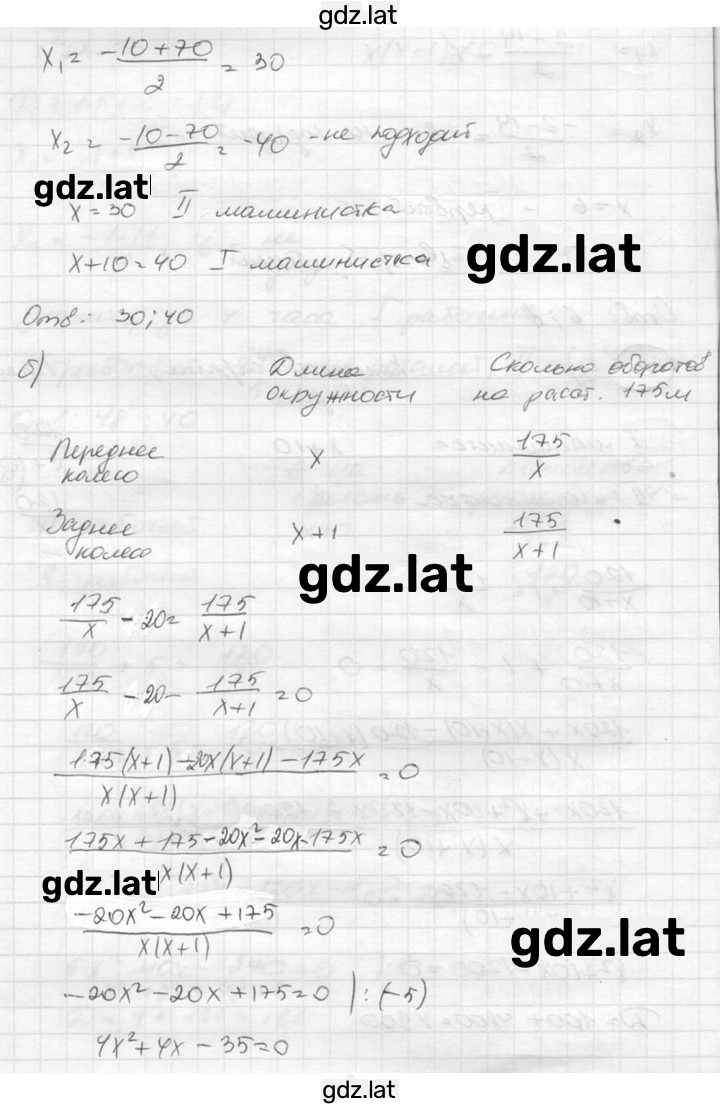 gdz.lat
x₁ = (-10+70)/2 = 30
x₂ = (-10-70)/2 = -40 - не подходит
gdz.lat
x=30 II машинистка
x+10=40 I машинистка
gdz.lat
Отв: 30; 40
б) Длина окружности Сколько оборотов на расст. 175м
Переднее колесо x 175/x
Заднее колесо x+1 175/(x+1)
gdz.lat
175/x - 20 = 175/(x+1)
175/x - 20 - 175/(x+1) = 0
(175(x+1) - 20x(x+1) - 175x)/(x(x+1)) = 0
(175x + 175 - 20x² - 20x - 175x)/(x(x+1)) = 0
gdz.lat
(-20x² - 20x + 175)/(x(x+1)) = 0
gdz.lat
-20x² - 20x + 175 = 0 | : (-5)
4x² + 4x - 35 = 0
gdz.lat